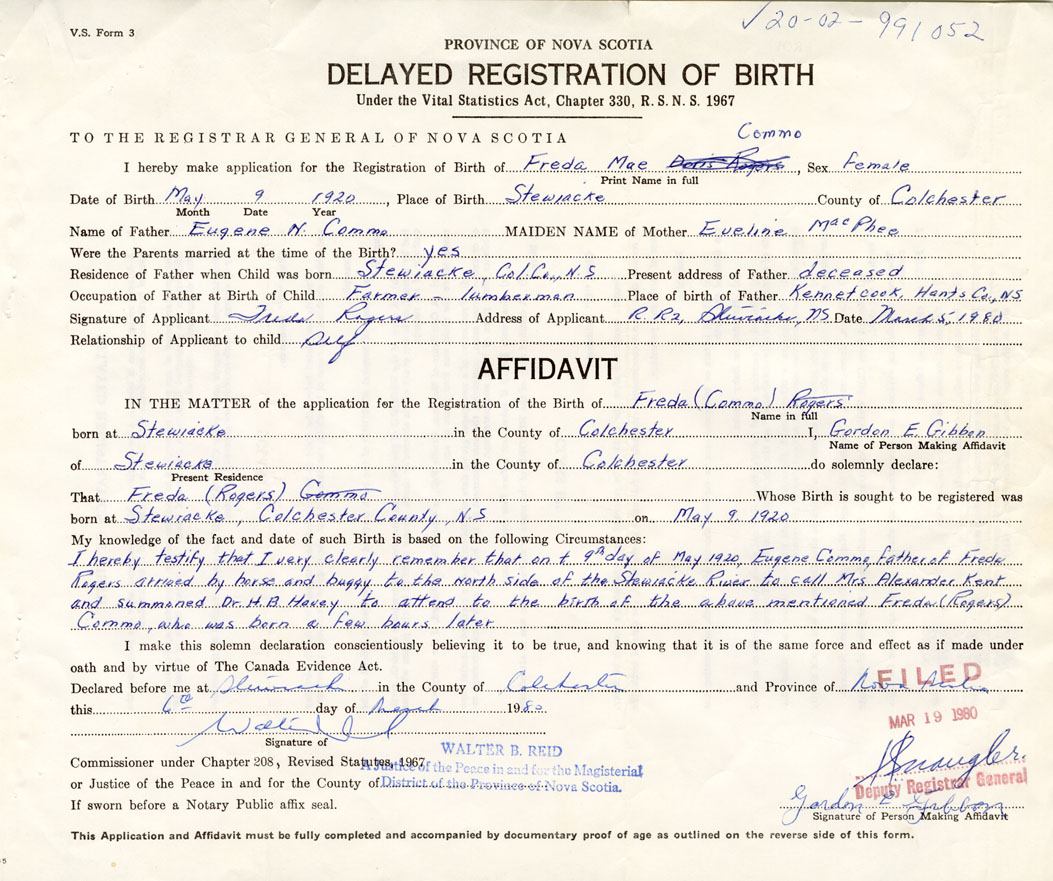 V.S. Form 3
√20-02-991052
PROVINCE OF NOVA SCOTIA
DELAYED REGISTRATION OF BIRTH
Under the Vital Statistics Act, Chapter 330, R. S. N. S. 1967
TO THE REGISTRAR GENERAL OF NOVA SCOTIA
Commo
I hereby make application for the Registration of Birth of Freda Mae Doris Rogers, Sex Female
Print Name in full
Date of Birth May 9 1920, Place of Birth Stewiacke County of Colchester
Month Date Year
Name of Father Eugene N. Commo MAIDEN NAME of Mother Eveline MacPhee
Were the Parents married at the time of the Birth? yes
Residence of Father when Child was born Stewiacke, Col. Co., N.S Present address of Father deceased
Occupation of Father at Birth of Child Farmer - lumberman Place of birth of Father Kennetcook, Hants Co., N.S
Signature of Applicant Freda Rogers Address of Applicant R. R 2, Stewiacke, N.S. Date March 5, 1980
Relationship of Applicant to child Self
AFFIDAVIT
IN THE MATTER of the application for the Registration of the Birth of Freda (Commo) Rogers
Name in full
born at Stewiacke in the County of Colchester I, Gordon E. Gibben
Name of Person Making Affidavit
of Stewiacke in the County of Colchester do solemnly declare:
Present Residence
That Freda (Rogers) Commo Whose Birth is sought to be registered was
born at Stewiacke, Colchester County, N.S on May 9, 1920
My knowledge of the fact and date of such Birth is based on the following Circumstances:
I hereby testify that I very clearly remember that on 9th day of May 1920, Eugene Commo, father of Freda
Rogers arrived by horse and buggy to the north side of the Stewiacke River to call Mrs. Alexander Kent
and summoned Dr. H. B. Havey to attend to the birth of the above mentioned Freda (Rogers)
Commo, who was born a few hours later
I make this solemn declaration conscientiously believing it to be true, and knowing that it is of the same force and effect as if made under
oath and by virtue of The Canada Evidence Act.
Declared before me at Stewiacke in the County of Colchester and Province of Nova Scotia
FILED
this 6th day of March 1980
MAR 19 1980
Signature of
WALTER B. REID
Commissioner under Chapter 208, Revised Statutes, 1967
A Justice of the Peace in and for the Magisterial
or Justice of the Peace in and for the County of District of the Province of Nova Scotia.
Deputy Registrar General
If sworn before a Notary Public affix seal.
Gordon E Gibbon
Signature of Person Making Affidavit
This Application and Affidavit must be fully completed and accompanied by documentary proof of age as outlined on the reverse side of this form.